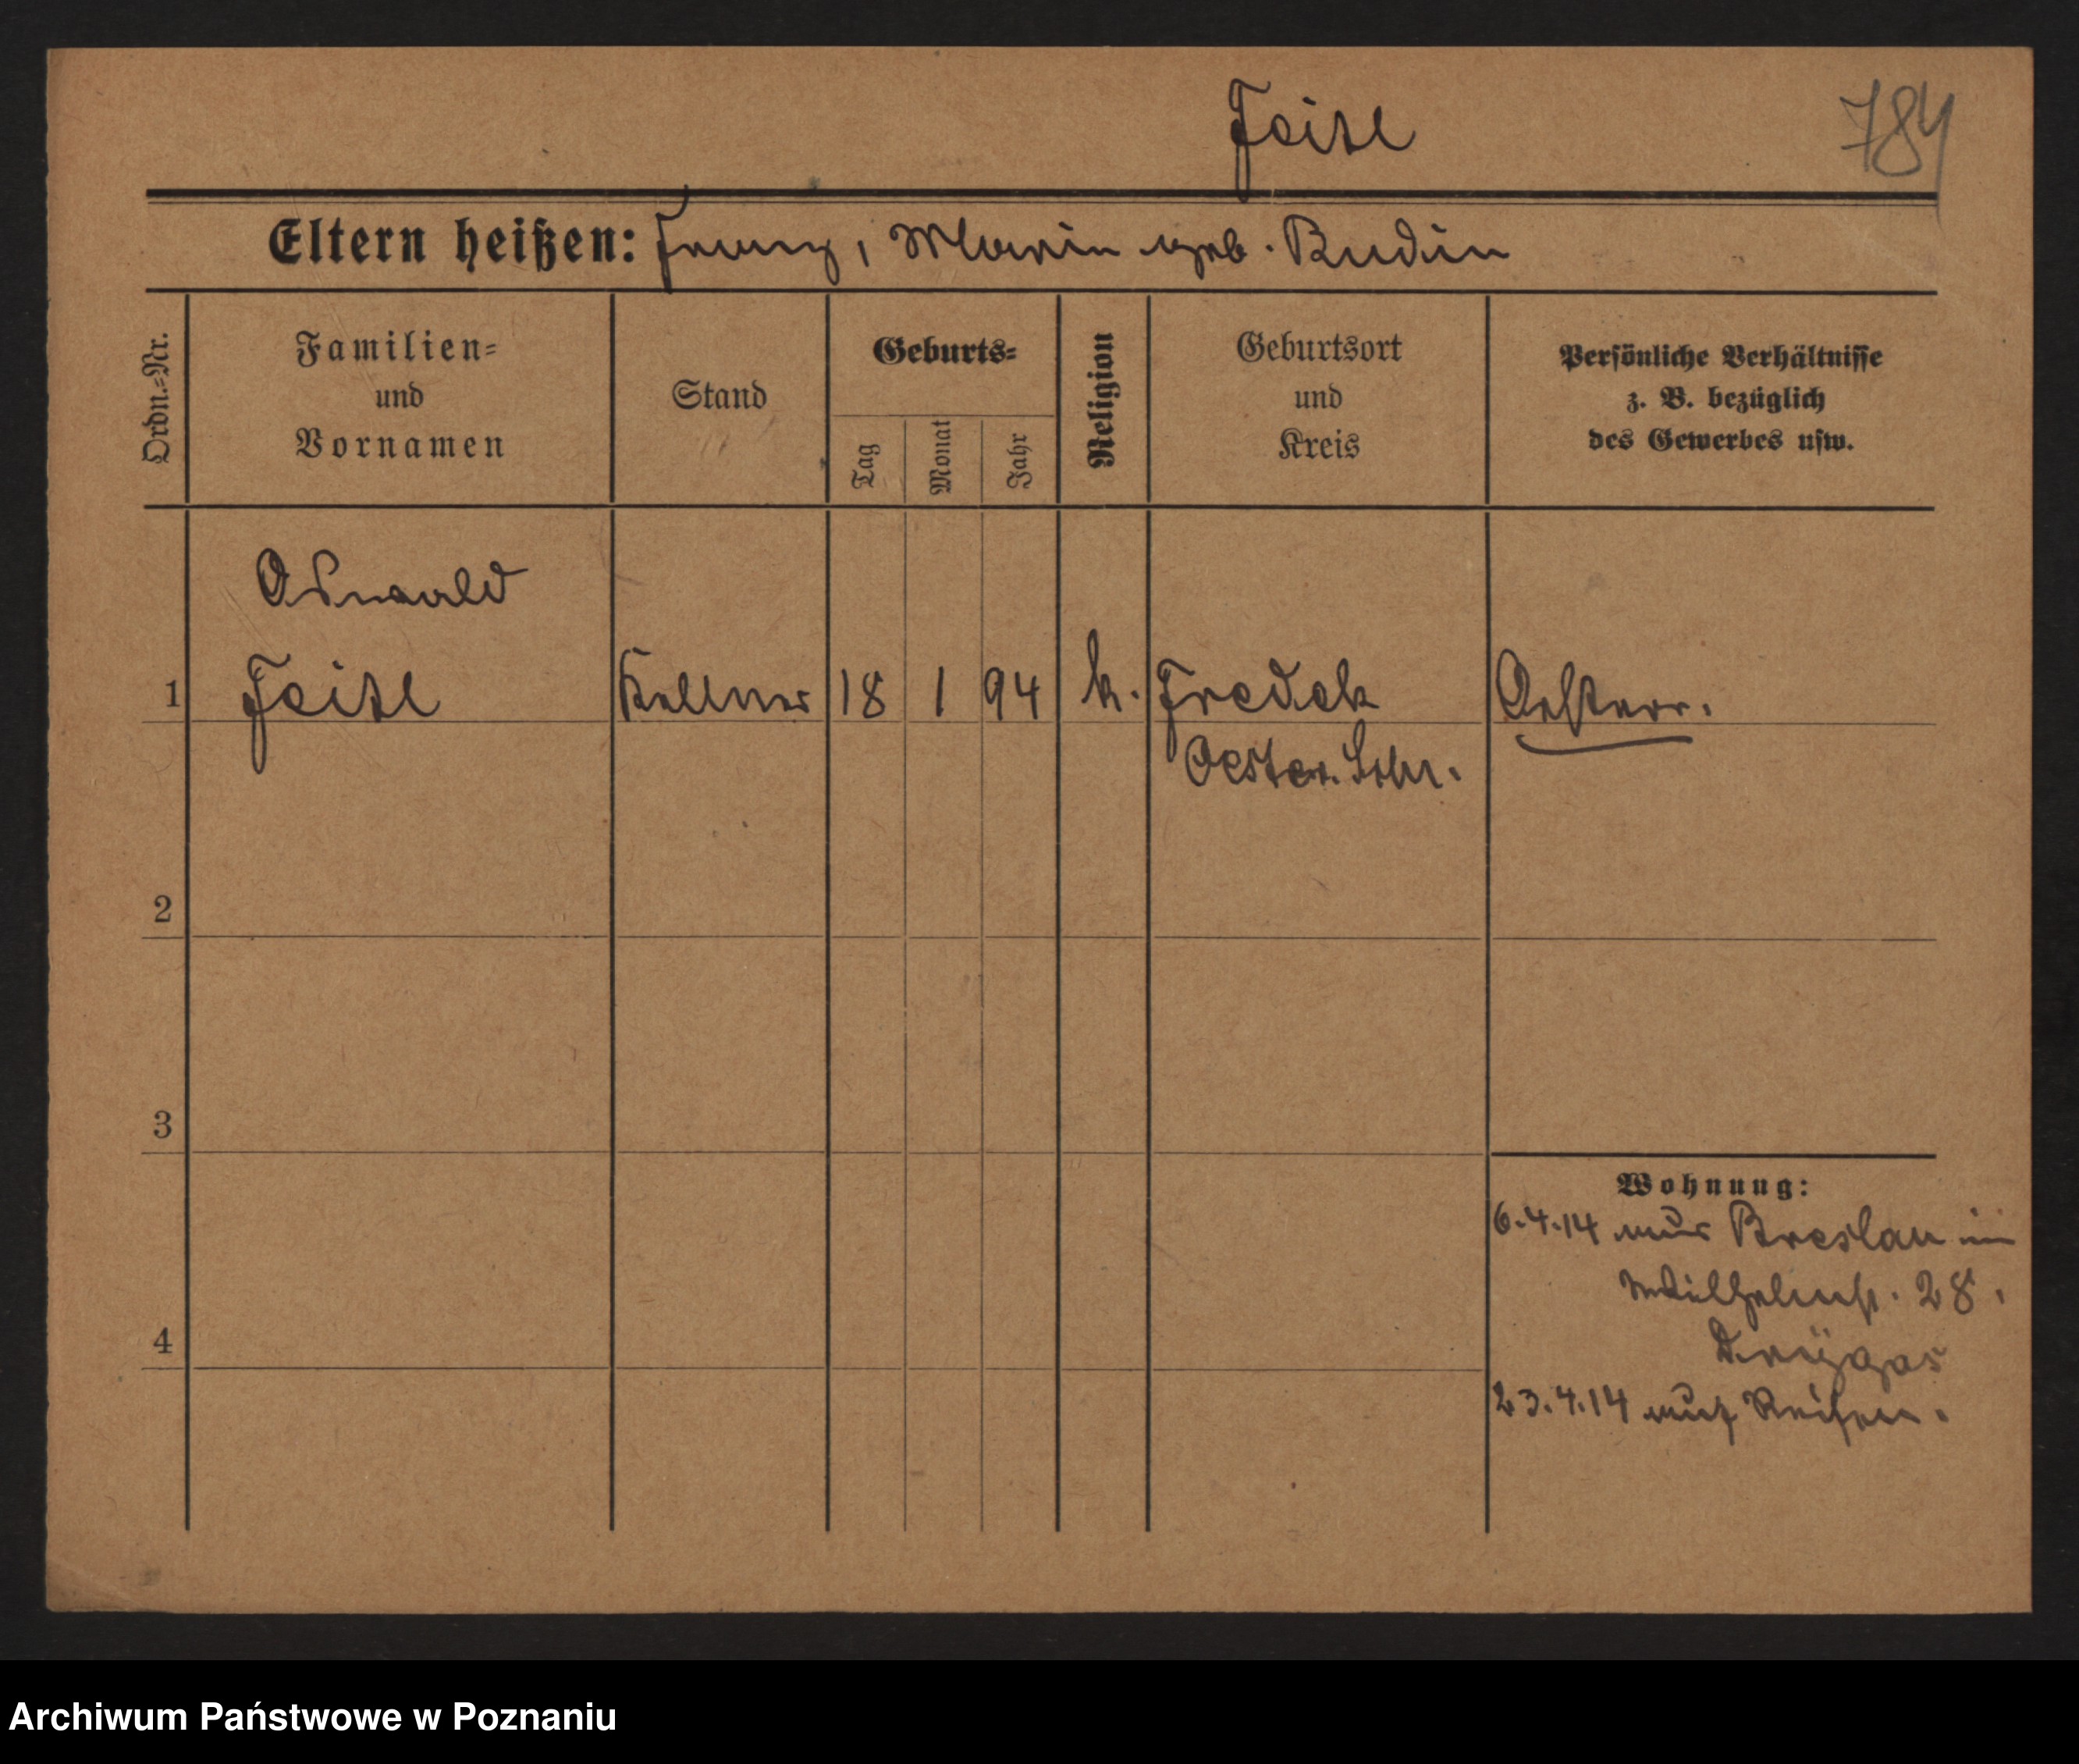 Feisl
784
Eltern heißen: Franz, Maria geb. Rudin
Ordn.=Nr.
Familien=
und
Vornamen
Stand
Geburts=
Tag
Monat
Jahr
Religion
Geburtsort
und
Kreis
Persönliche Verhältnisse
z. B. bezüglich
des Gewerbes usw.
Oswald
1 Feisl Kellner 18 1 94 k. Fredek Oesterr.
Oester. Schr.
2
3
4
Wohnung:
6.4.14 aus Breslau in
Wilhelmstr. 28.
23.4.14 auf Reisen.
Archiwum Państwowe w Poznaniu